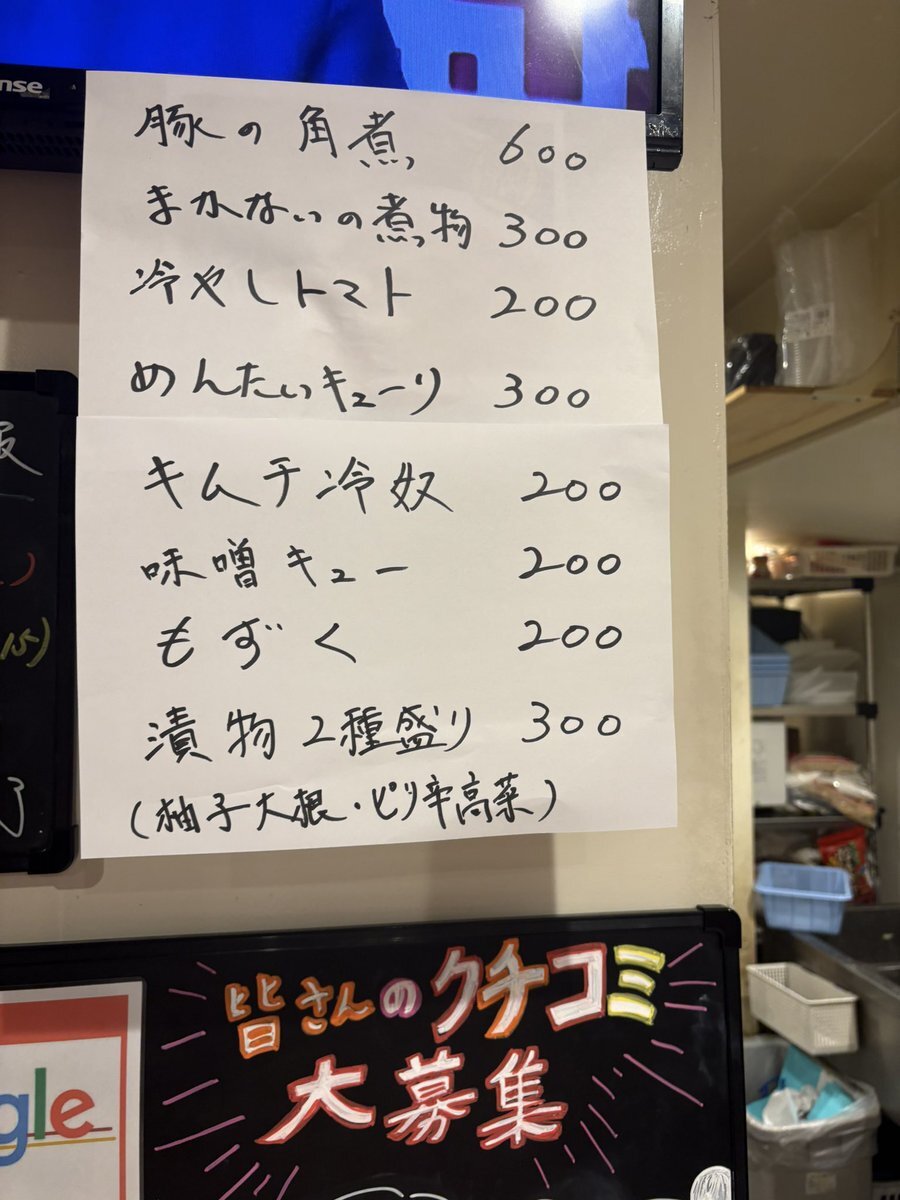 nse
豚の角煮 600
まかないの煮物 300
冷やしトマト 200
めんたいキューリ 300
キムチ冷奴 200
味噌キュー 200
もずく 200
漬物2種盛り 300
(柚子大根・ピリ辛高菜)
15)
皆さんのクチコミ
大募集
gle